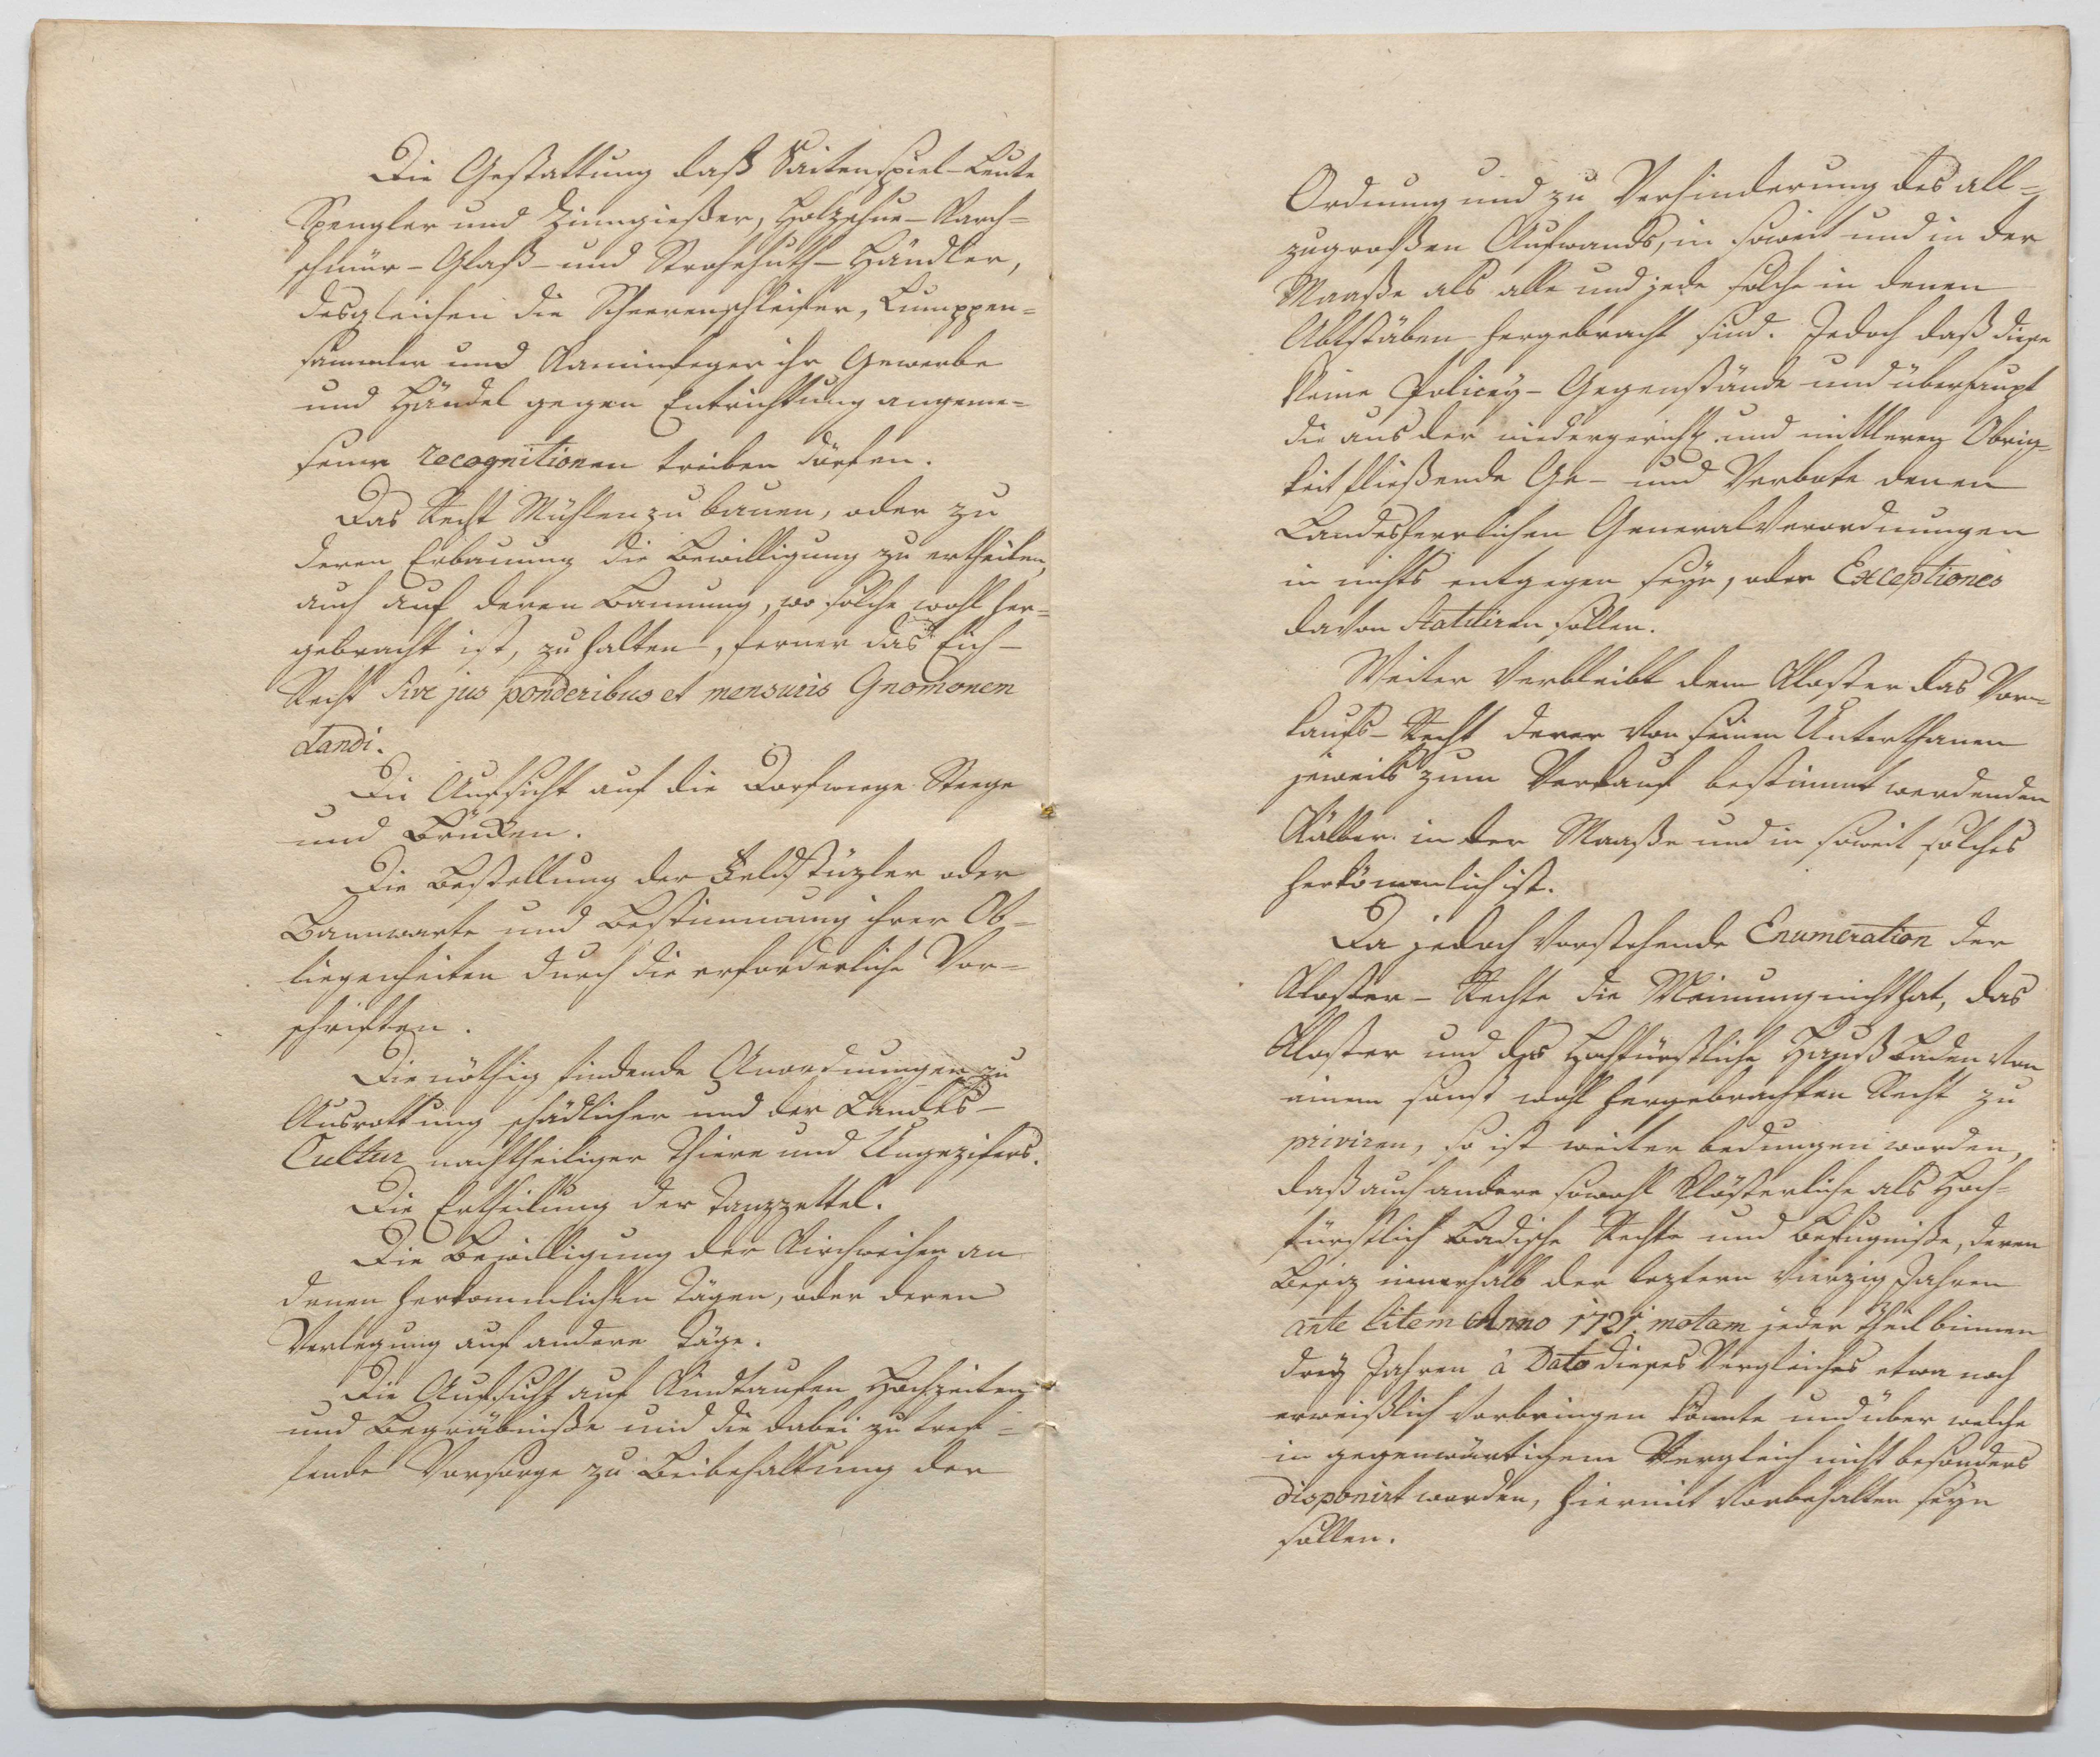 Die Gestattung daß Saitenspiel-Leute
Spengler und Zinngießer, Holzuhr-Karch-
schmür-Glaß- und Strohehuth-Händler,
desgleichen die Scheerenschleifer, Lumppen-
sammler und Kaminfeger ihr Gewerbe
und Händel gegen Entrichtung angeme-
sener recognitionen treiben dörfen.
Das Recht Mühlen zu bauen, oder zu
deren Erbauung die Bewilligung zu ertheilen,
auch auf deren Bannung, wo solche wohl her-
gebracht ist, zu halten, ferner das Eich-
Recht sive jus ponderibus et mensuris Gnomonem
dandi.
Die Aufsicht auf die Dorfweege Steege
und Brücken.
Die Bestellung der Feldstüzler oder
Bannwarte und Bestimmung ihrer Ob-
liegenheiten durch die erforderliche Vor-
schriften.
Die nöthig findende Anordnungen zu
Ausrottung schädlicher und der Landes-
Cultur nachtheiliger Thiere und Ungezifers.
Die Ertheilung der Tanzzettel.
Die Bewilligung der Kirchweihen an
denen herkommlichen Tägen, oder deren
Verlegung auf andere Täge.
Die Aufsicht auf Kindtaufen Hochzeiten
und Begräbniße und die dabei zu tref-
fende Vorsorge zu Beibehaltung der
Ordnung und zu Verhinderung des all-
zugroßen Aufwands, in soweit und in der
Maaße als alle und jede solche in denen
Abtstäben hergebracht sind. Jedoch daß diese
kleine Policey-Gegenstände und überhaupt
die aus der niedergerichtl. und mittleren Obrig-
keit fließende Ge- und Verbote denen
Landesherrlichen General Verordnungen
in nichts entgegen seyn, oder Exceptiones
davon statuiren sollen.
Weiter verbleibt dem Kloster das Vor-
kaufs-Recht derer von seinen Unterthanen
jeweils zum Verkauf bestimmt werdenden
Kälber in der Maaße und in soweit solches
herkömmlich ist.
Da jedoch vorstehende Enumeration der
Kloster-Rechte die Meinung nicht hat, das
Kloster und das Hochfürstliche Hauß Baden von
einem sonst wohl hergebrachten Recht zu
priviren, so ist weiter bedungen worden,
daß auch andere sowohl Klösterliche als Hoch-
fürstlich Badische Rechte und Befugniße, deren
Besiz innerhalb der leztern vierzig Jahren
ante litem Anno 1721. motam jeder Theil binnen
drey Jahren à Dato dieses Vergleiches etwa noch
erweißlich vorbringen könnte und über welche
in gegenwärtigem Vergleich nicht besonders
disponirt worden, hiermit vorbehalten seyn
sollen.